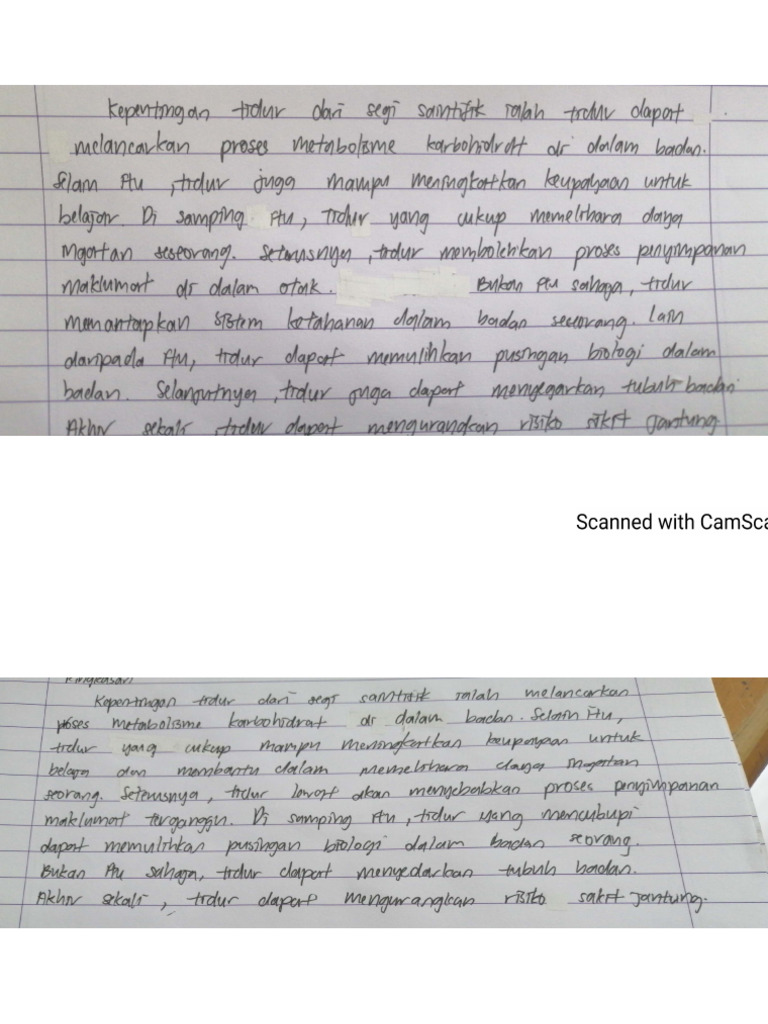 Kepentingan tidur dari segi saintifik ialah tidur dapat
melancarkan proses metabolisme karbohidrat di dalam badan.
Selain itu, tidur juga mampu meningkatkan keupayaan untuk
belajar. Di samping itu, tidur yang cukup memelihara daya
ingatan seseorang. Seterusnya, tidur membolehkan proses penyimpanan
maklumat di dalam otak. Bukan itu sahaja, tidur
memantapkan sistem ketahanan dalam badan seseorang. Lain
daripada itu, tidur dapat memulihkan pusingan biologi dalam
badan. Selanjutnya, tidur juga dapat menyegarkan tubuh badan.
Akhir sekali, tidur dapat mengurangkan risiko sakit jantung
Scanned with CamSca
Ringkasan
Kepentingan tidur dari segi saintifik ialah melancarkan
proses metabolisme karbohidrat di dalam badan. Selain itu,
tidur yang cukup mampu meningkatkan keupayaan untuk
belajar dan membantu dalam memelihara daya ingatan
seorang. Seterusnya, tidur lewat akan menyebabkan proses penyimpanan
maklumat terganggu. Di samping itu, tidur yang mencukupi
dapat memulihkan pusingan biologi dalam badan seorang.
Bukan itu sahaja, tidur dapat menyedarkan tubuh badan.
Akhir sekali, tidur dapat mengurangkan risiko sakit jantung.